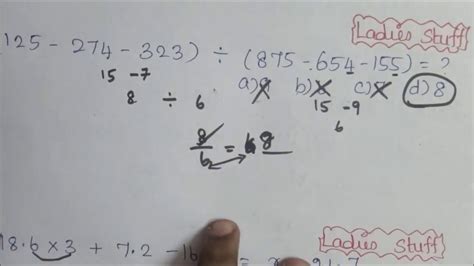 Ladies Stuff
125 - 274 - 323) ÷ (875 - 654 - 155) = ?
15 - 7
a) b) c) d) 8
8 ÷ 6
15 - 9
6
8/6 = 8
Ladies Stuff
18.6 × 3 + 7.2 - 16